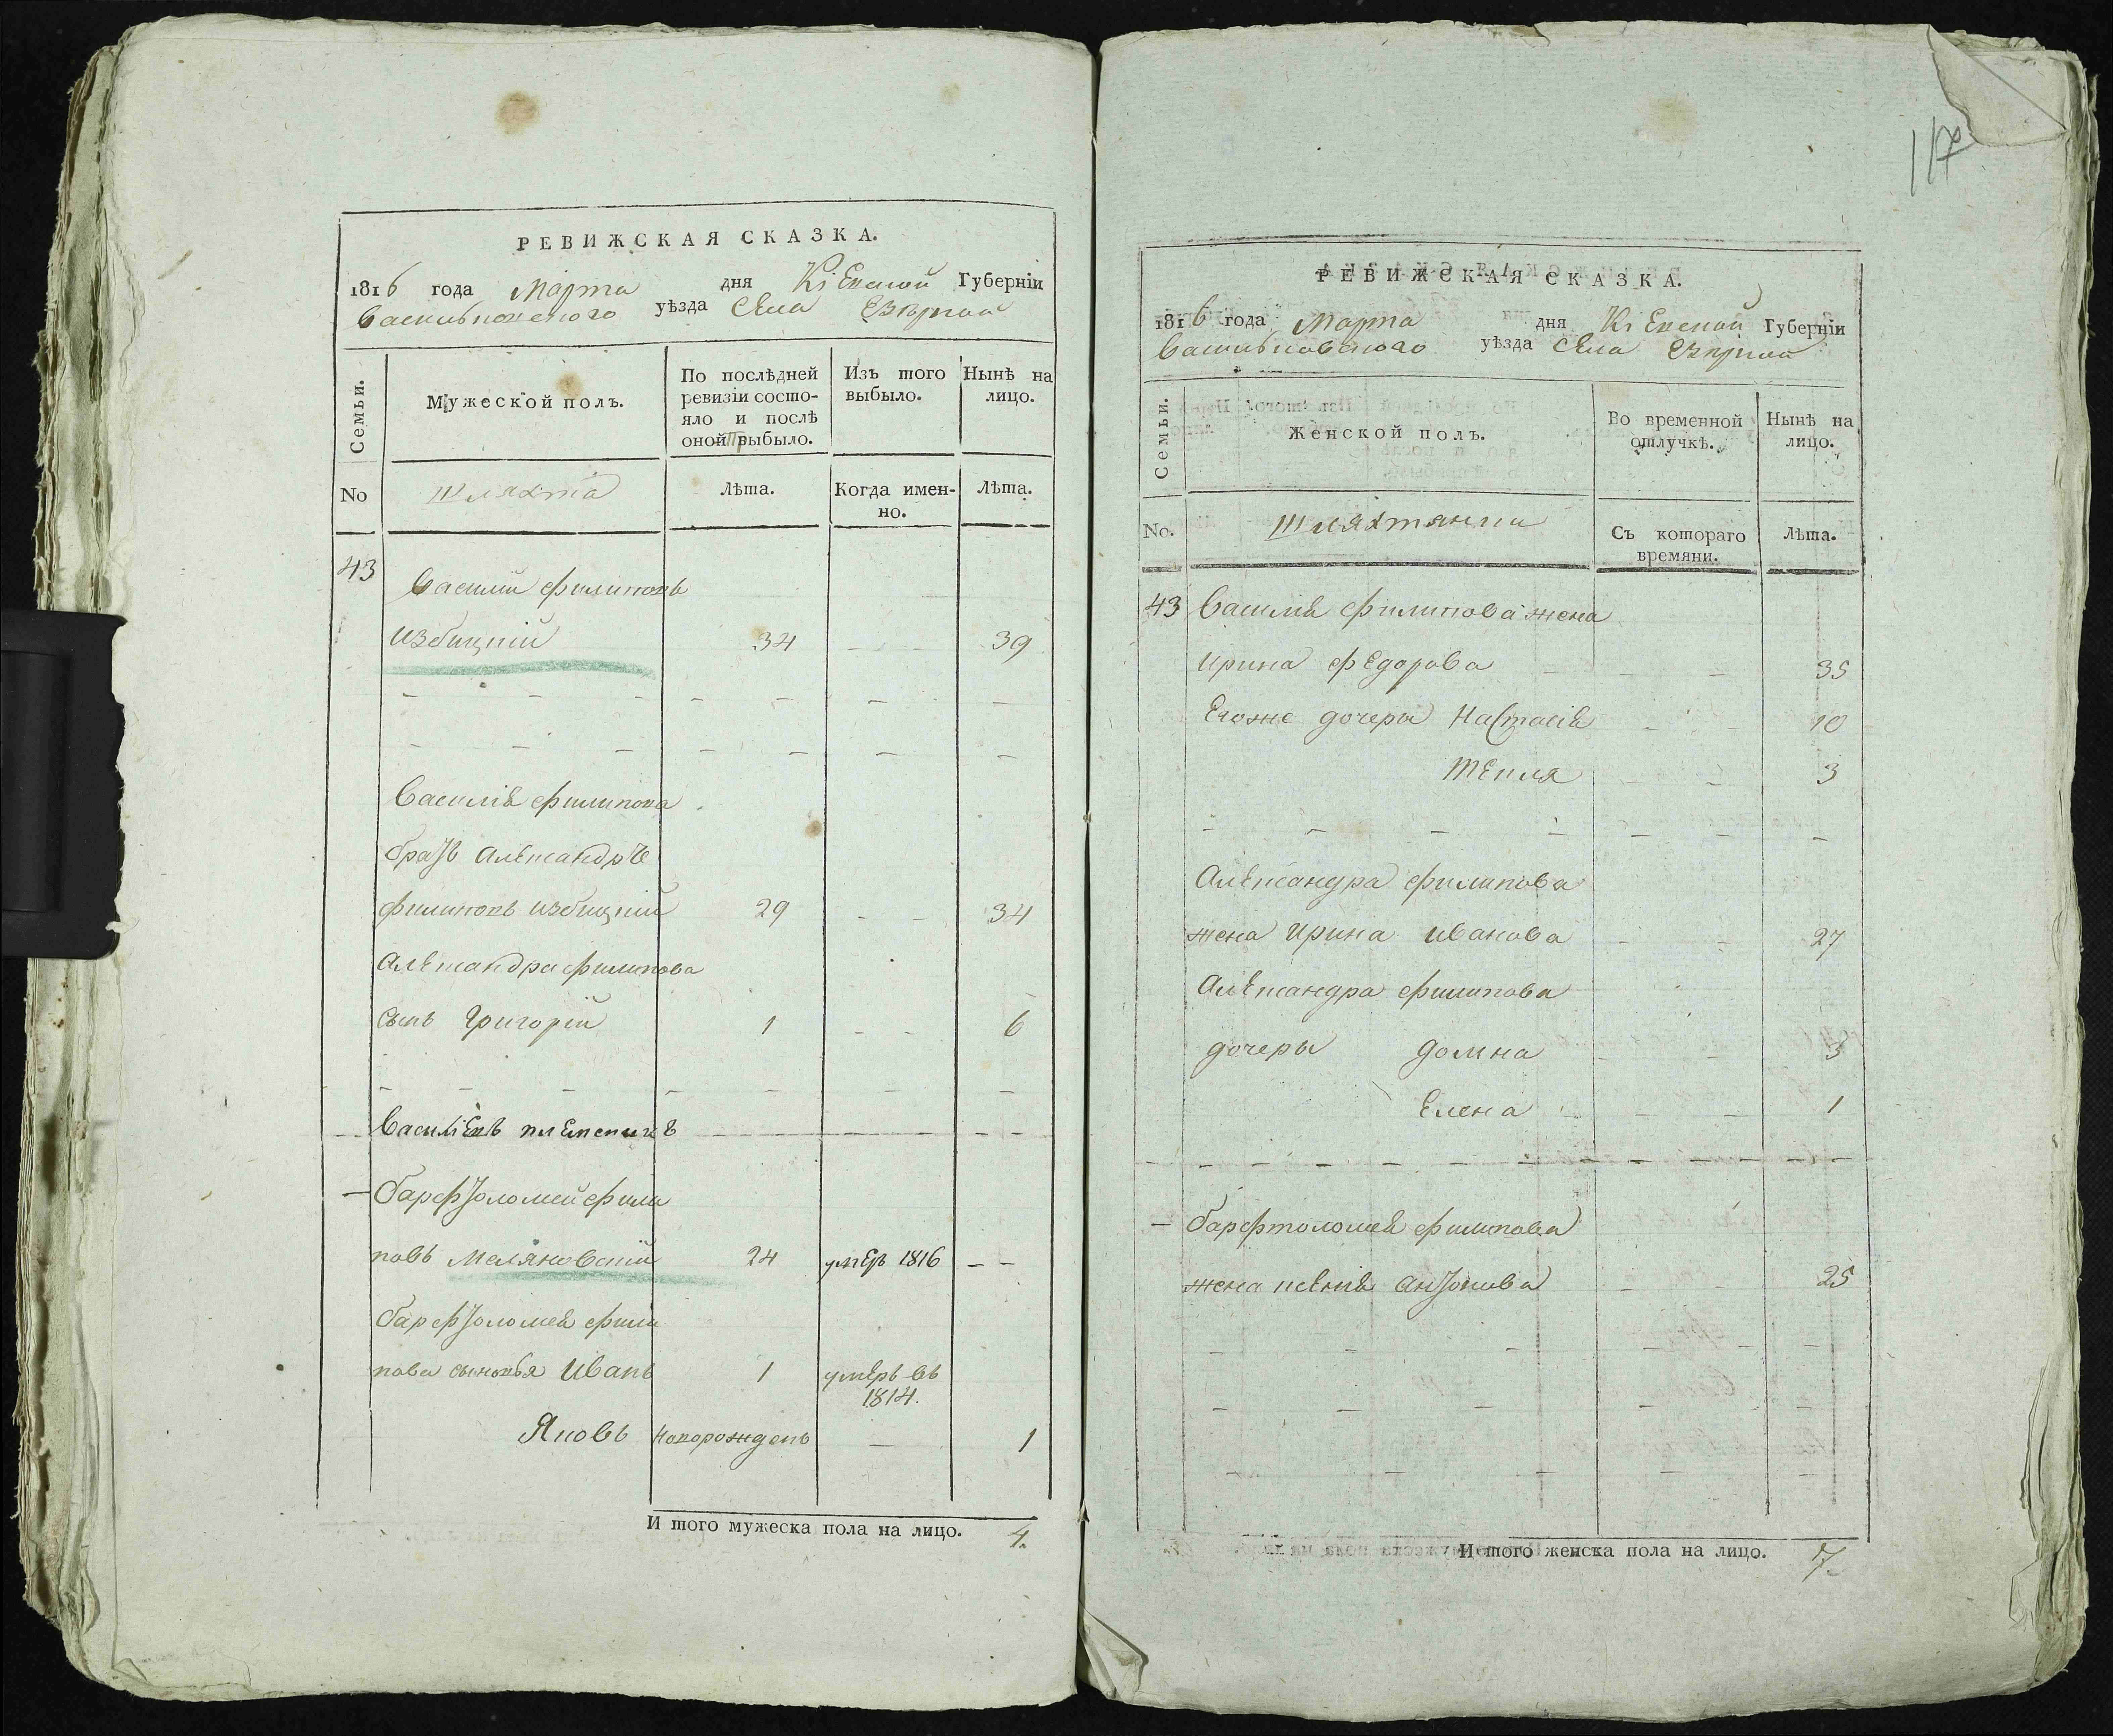 РЕВИЖСКАЯ СКАЗКА.
1816 года Марта дня Кіевской Губерніи
Васильковского уѣзда села Езерной
Семьи.
Мужеской полъ.
По послѣдней ревизіи состояло и послѣ оной выбыло.
Изъ того выбыло.
Нынѣ на лицо.
No
Шляхта
Лѣта.
Когда именно.
Лѣта.
43
Василий Филиповъ
Избицкій 34 - - 39
Василія Филипова
братъ Александръ
Филиповъ Избицкій 29 - - 34
Александра Филипова
сынъ Григорій 1 - - 6
Василіевъ племеникъ
- Барфтоломей Фили
повъ Меляновскій 24 умеръ 1816 - -
Барфтоломея Фили
пова сыновья Иванъ 1 умеръ въ
1814.
Яковъ новорожденъ — 1
И того мужеска пола на лицо. 4.
РЕВИЖСКАЯ СКАЗКА.
1816 года Марта дня Кіевской Губерніи
Васильковского уѣзда села Езерной
Семьи.
Женской полъ.
Во временной отлучкѣ.
Нынѣ на лицо.
No.
Шляхтянки
Съ котораго времяни.
Лѣта.
43 Василія Филипова жена
Ирина Федорова 35
Егоже дочеры Настасія 10
Текля 3
Александра Филипова
жена Ирина Иванова 27
Александра Филипова
дочеры Домна 3
Елена 1
- Барфтоломея Филипова
жена Антонова 25
И того женска пола на лицо. 7.